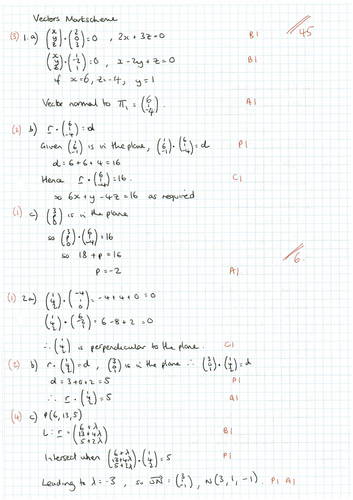 Vectors Markscheme
45
(3) 1. a) (x y z) . (2 0 3) = 0 , 2x + 3z = 0 B1
(x y z) . (1 -2 1) = 0 , x - 2y + z = 0 B1
if x = 6, z = -4, y = 1
Vector normal to π₁ = (6 1 -4) A1
(2) b) r . (6 1 -4) = d
Given (1 6 -1) is in the plane, (1 6 -1) . (6 1 -4) = d P1
d = 6 + 6 + 4 = 16
Hence r . (6 1 -4) = 16. C1
so 6x + y - 4z = 16 as required
(1) c) (3 p 0) is in the plane
so (3 p 0) . (6 1 -4) = 16
so 18 + p = 16
p = -2 A1
6.
(1) 2.a) (1 4 2) . (-4 1 0) = -4 + 4 + 0 = 0
(1 4 2) . (6 -2 1) = 6 - 8 + 2 = 0
∴ (1 4 2) is perpendicular to the plane. C1
(2) b) r . (1 4 2) = d , (3 0 1) is in the plane ∴ (3 0 1) . (1 4 2) = d
d = 3 + 0 + 2 = 5 P1
∴ r . (1 4 2) = 5 A1
(4) c) P(6, 13, 5)
L : r = (6 + λ 13 + 4λ 5 + 2λ) B1
Intersect when (6 + λ 13 + 4λ 5 + 2λ) . (1 4 2) = 5 P1
Leading to λ = -3, so ON = (3 1 -1), N(3, 1, -1). P1 A1